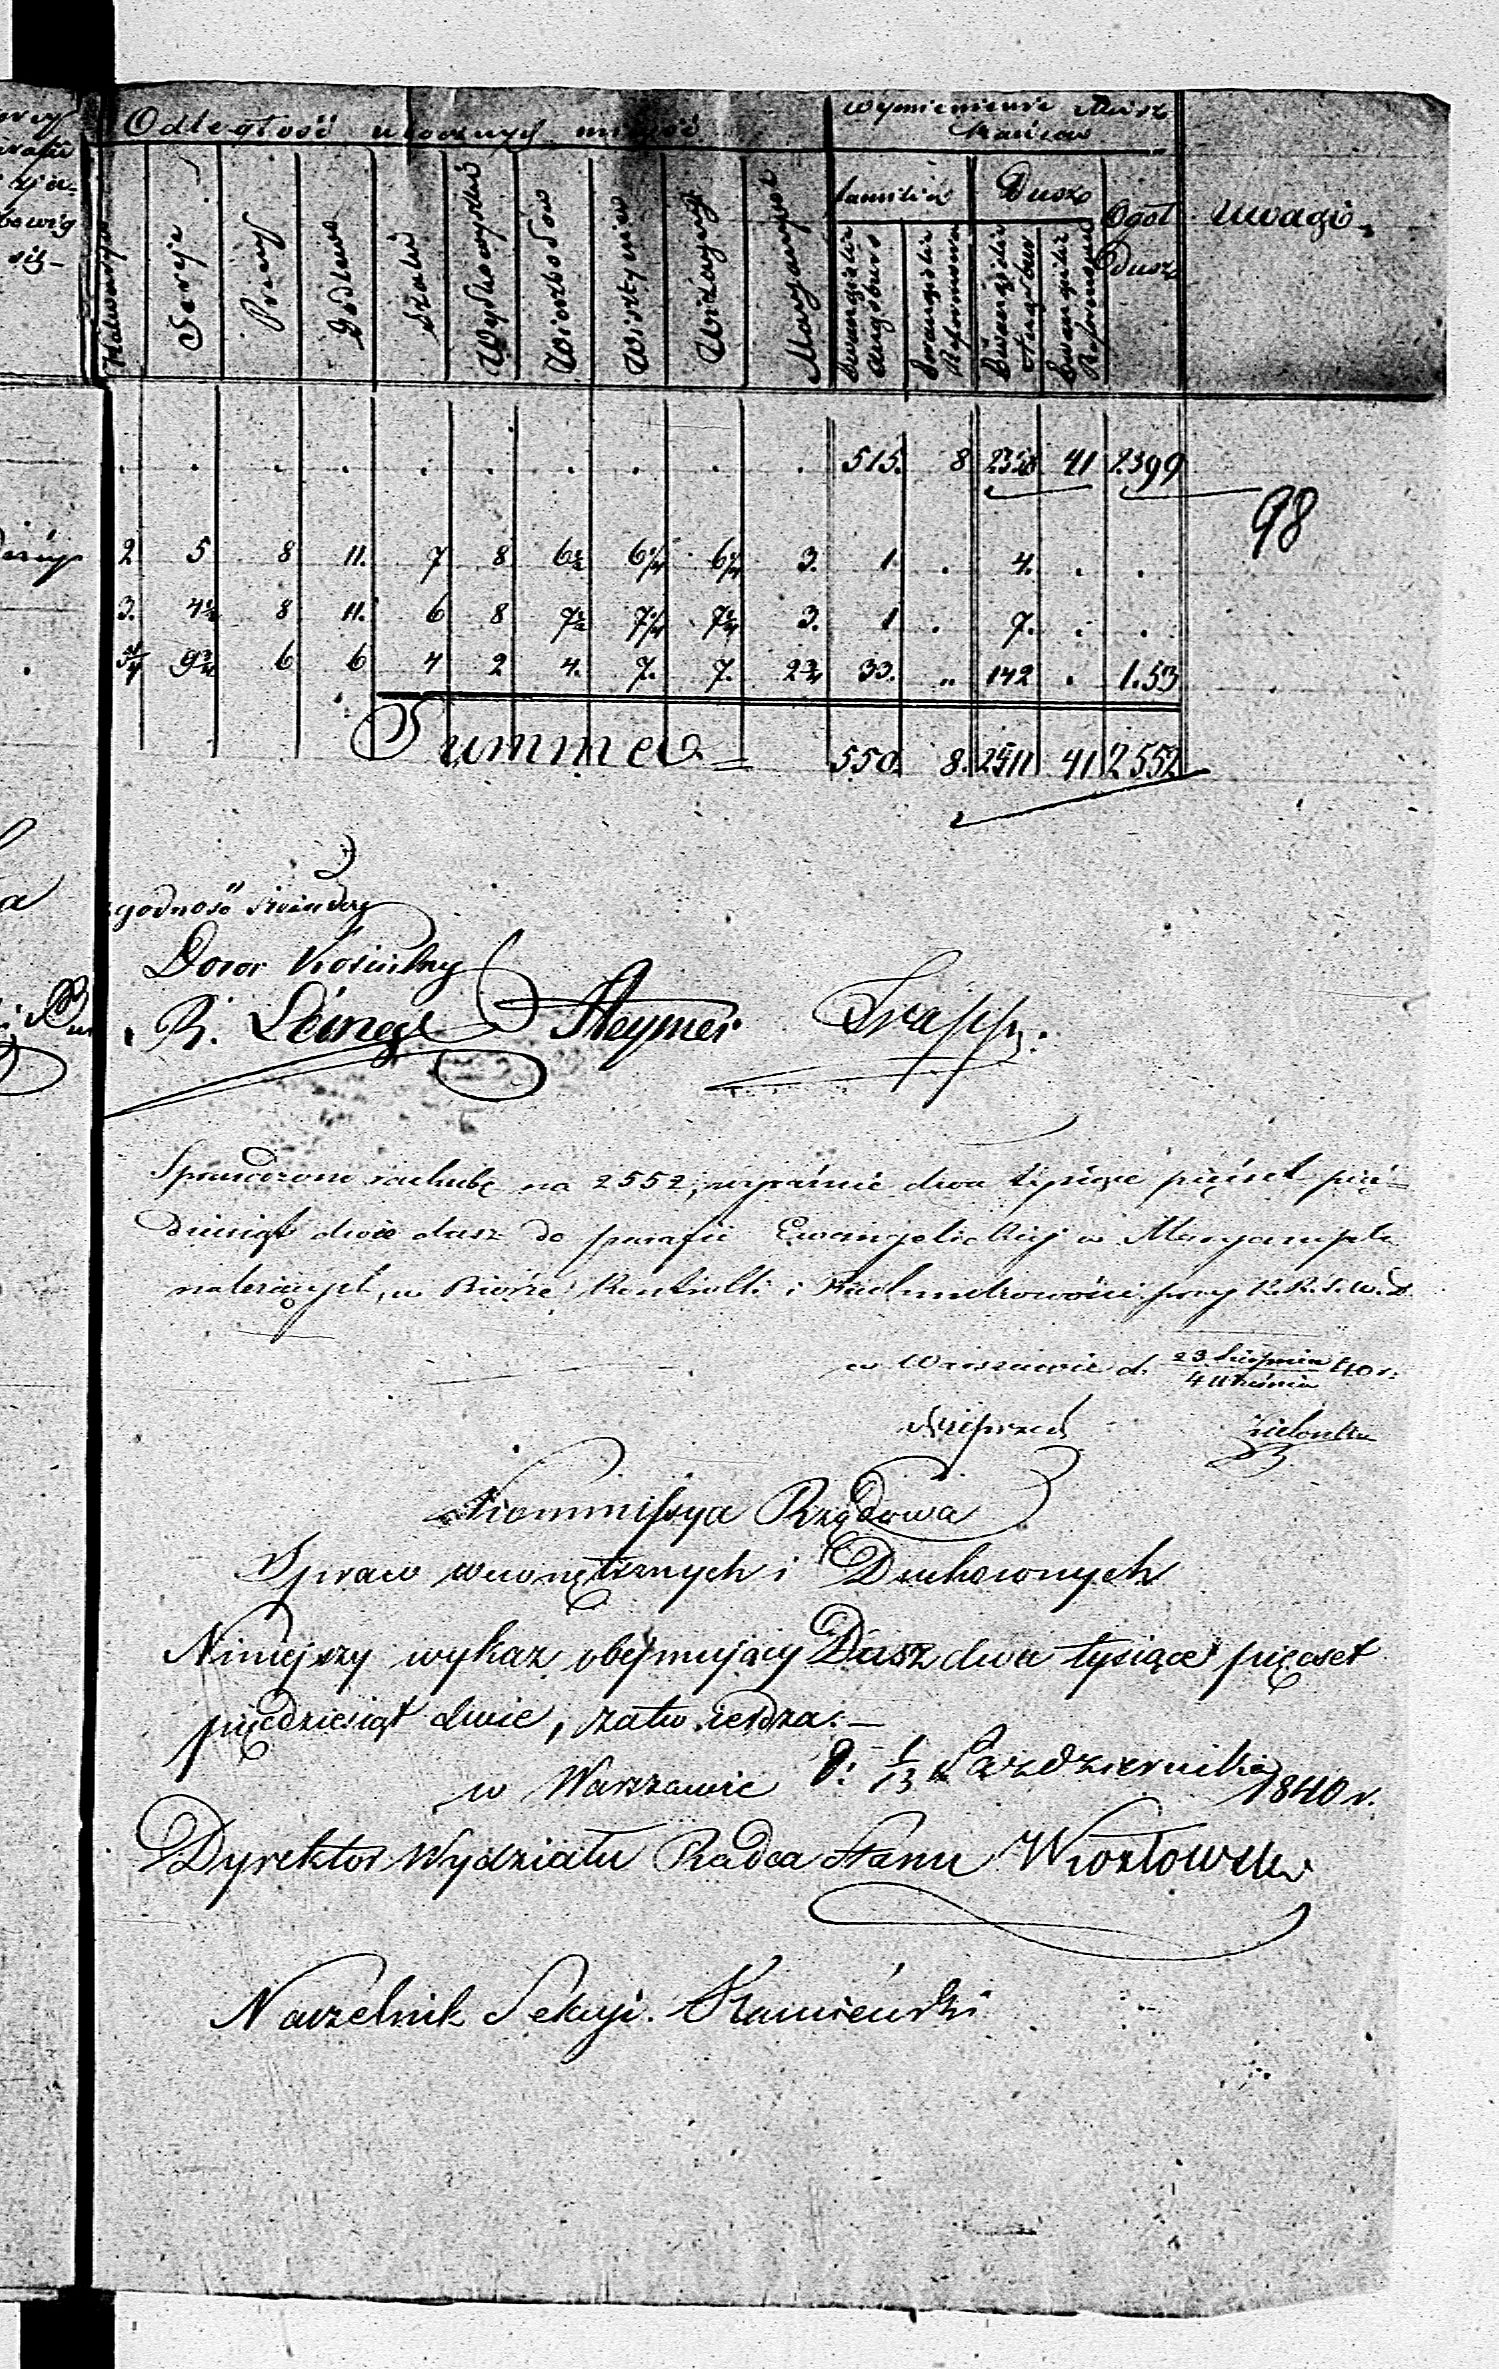 Odległość ulocznych miejsc
wymienienie Miesz
kańców
familia Dusz Ogół Dusz Uwagi.
Kalwarya Sereje Preny Godlewo Szaki Wyłkowyszki Wisztyniec Wiżayny Maryampol
Ewangielia Augsburs Ewangielia Reformowa Ewangielia Augsburs Ewangielia Reformowa
515. 8 2358 41 2399
98
2 5 8 11. 7 8 6½ 6¼ 6¼ 3. 1. . 4. . .
3. 4½ 8 11. 6 8 7½ 7¼ 7¼ 3. 1 . 7. . .
9¾ 6 6 4 2 4. 7. 7. 2¾ 33. " 142 . 1.53
Summa = 550. 8. 2511 41 2552
zgodność świadczy
Dozor Kościelny
R. Heymer
Sprawdzono rachubę na 2552, wyraźnie dwa tysiące pięćset pięć-
dziesiąt dwie dusz do parafii Ewangelickiej w Maryampolu
należących, w Biórze Kontrolli i Rachunkowości przy K.R.S.W.D.
w Warszawie d. 23 Sierpnia / 4 Września 40 r.
Zielonka
Kommissya Rządowa
Spraw wewnętrznych i Duchownych
Niniejszy wykaz obejmujący Dusz dwa tysiące pięcset
pięcdziesiąt dwie, zatwierdza: —
w Warszawie d: 1/13 Października 1840 r.
Dyrektor Wydziału Radca Stanu Kozłowski
Naczelnik Sekcyi. Kamieński